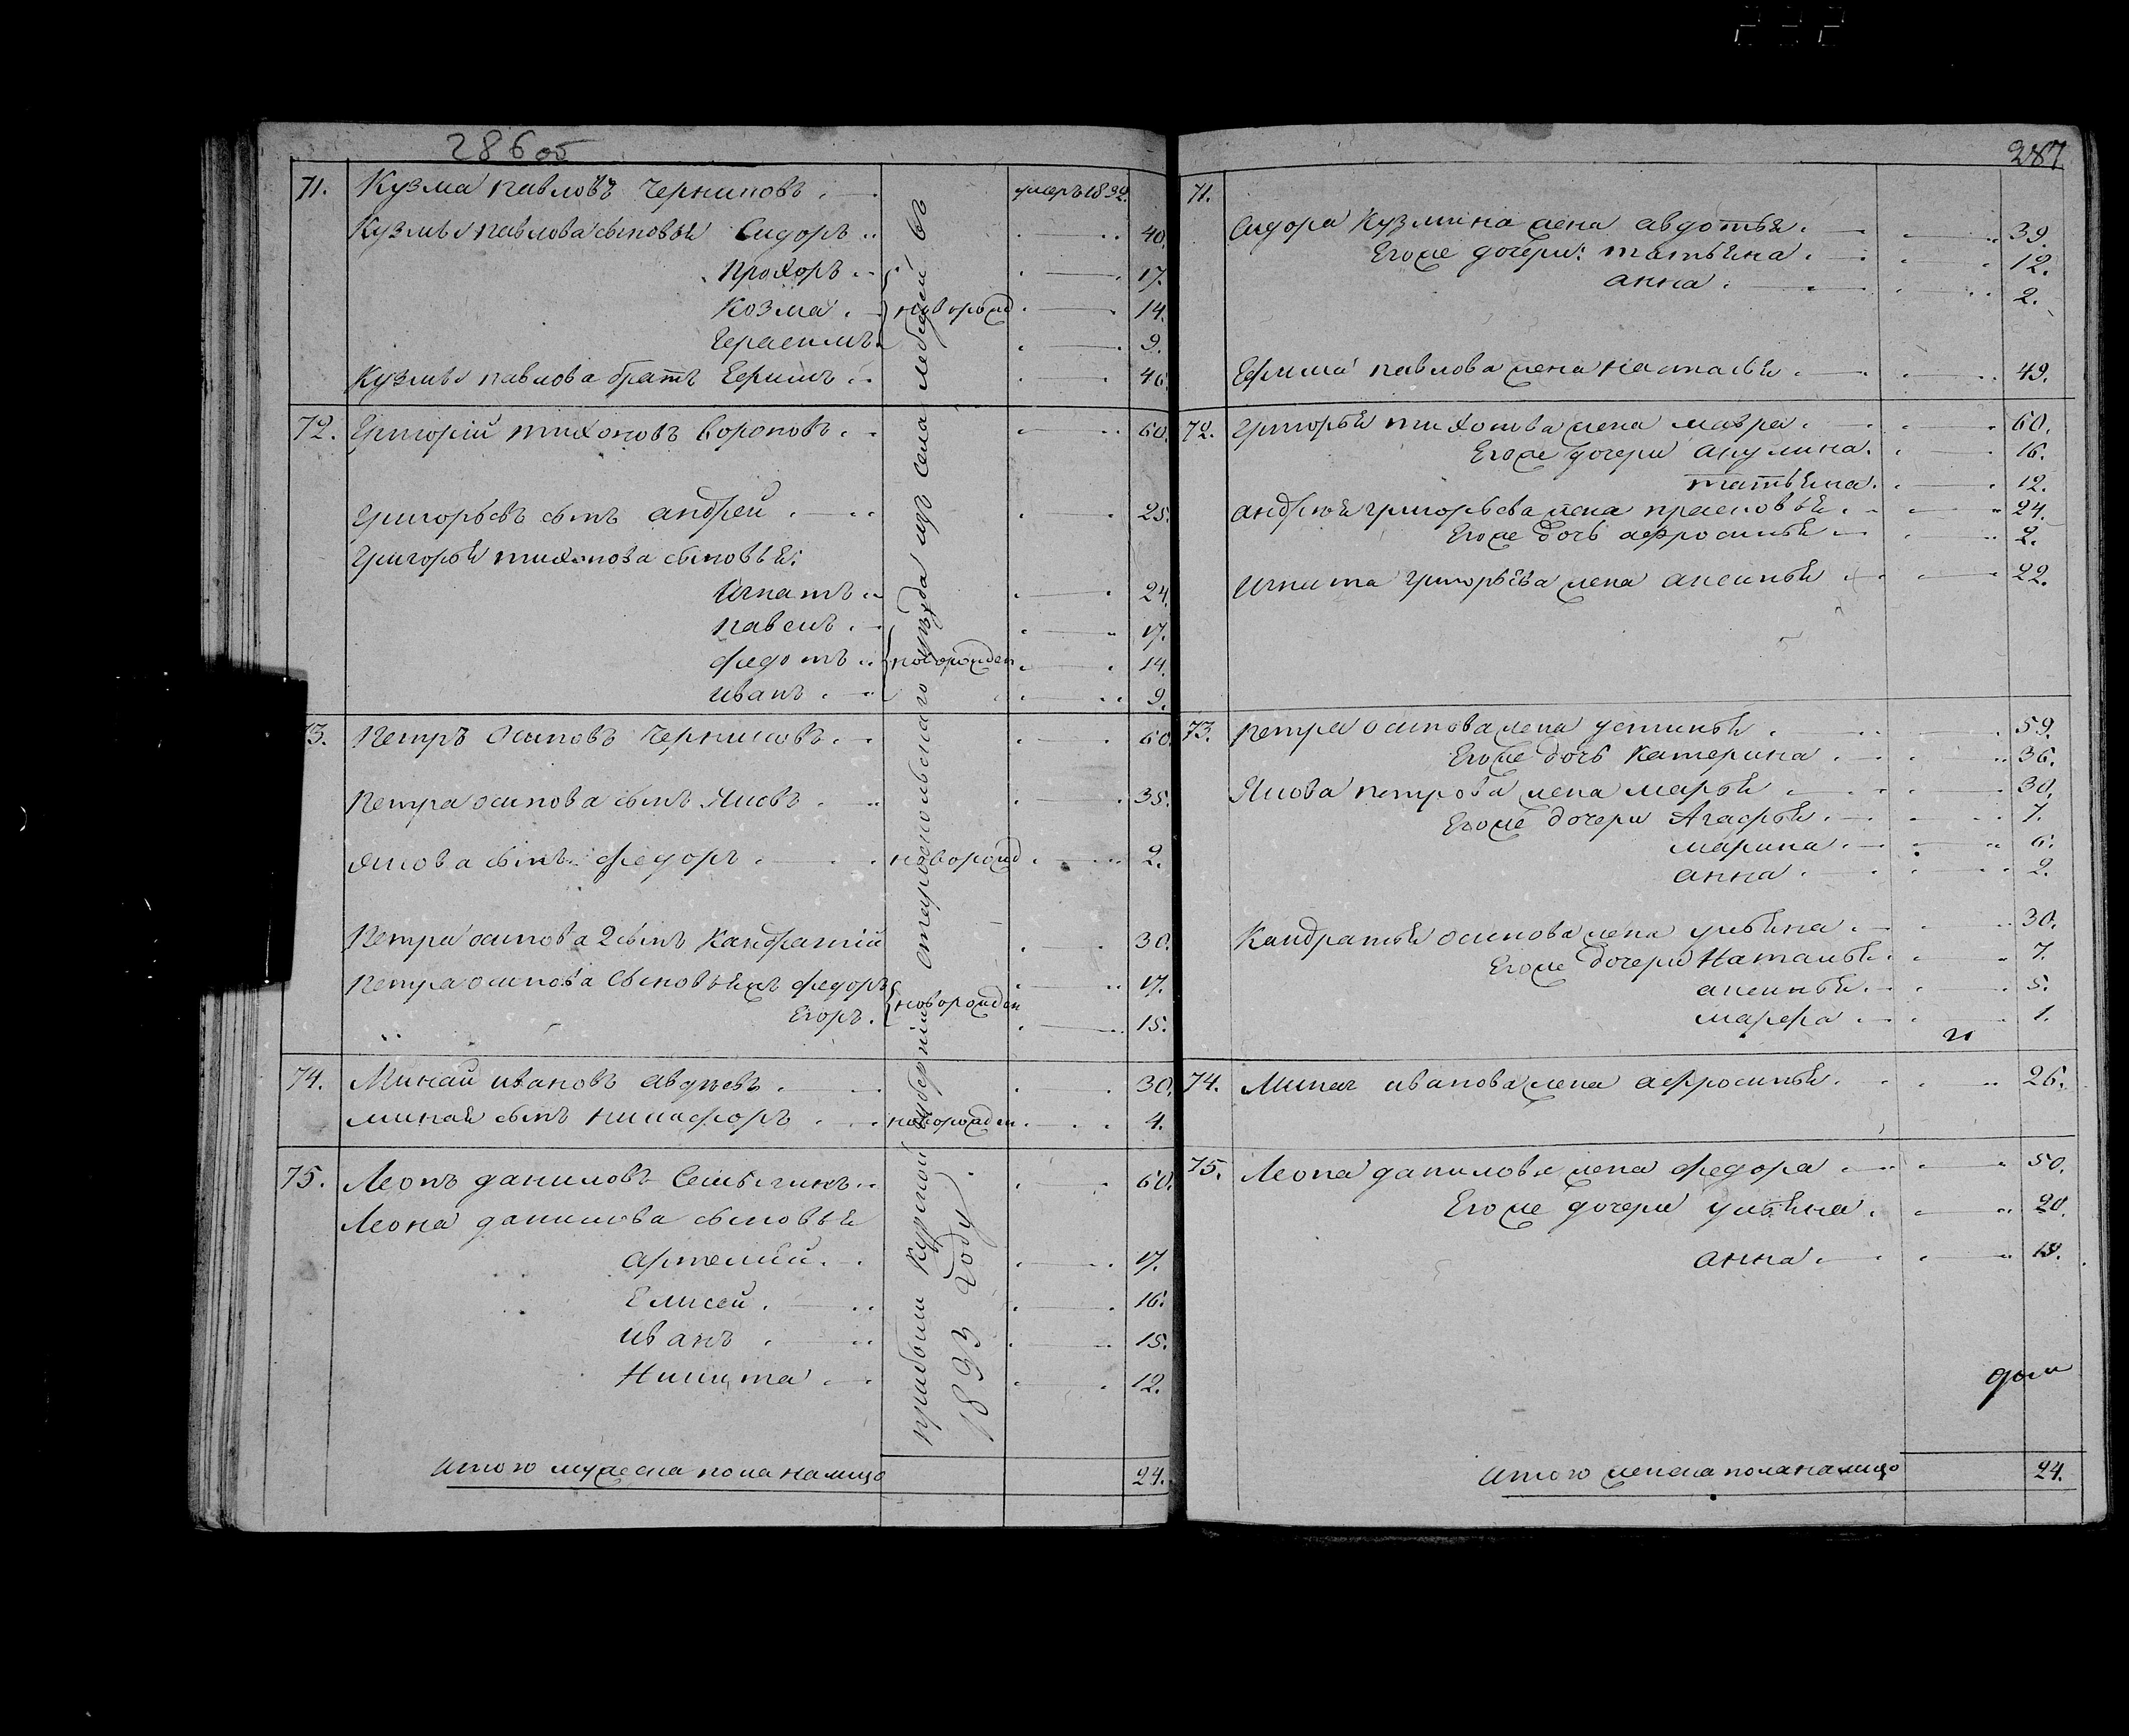 286 об
71. Кузма павловъ Черниковъ умеръ 1832.
Кузмы павлова сыновья Сидоръ 40.
Прохоръ 17.
Козма новорожд 14.
Герасимъ 9.
Кузмы павлова братъ Ефимъ 46.
72. Григорій тихоновъ вороновъ 60.
Григорьевъ сынъ андрей 25.
Григорья тихонова сыновья:
Игнатъ 24.
павелъ 17.
федотъ новорожден 14.
иванъ 9.
73. Петръ Осиповъ Черниковъ 60.
Петра осипова сынъ Яковъ 35.
якова сынъ федоръ новорожд 2.
Петра осипова 2 сынъ Кандратій 30.
Петра осипова сыновья федоръ 17.
Егоръ новорожден 15.
74. Минай ивановъ авдѣевъ 30.
миная сынъ никифоръ новорожден 4.
75. Леонъ даниловъ 60.
Леона данилова сыновья
артемий 17.
Елисей 16.
иванъ 15.
Никита 12.
прибыли Курской губерніи старооскольскаго уѣзда изъ села лебедей въ
1823 году
итого мужеска пола налицо 24.
287
71.
Сидора Кузмина жена авдотья 39.
Егоже дочери: татьяна 12.
анна 2.
Ефима павлова жена настасья 49.
72. Григорья тихонова жена мавра 60.
Егоже дочери акулина 16.
татьяна 12.
андрея григорьева жена прасковья 24.
Егоже дочь афросинья 2.
Игната григорьева жена аксинья 22.
73. петра осипова жена устинья 59.
Егоже дочь катерина 36.
Якова петрова жена марья 30.
Егоже дочери Агафья 7.
марина 6.
анна 2.
Кандратья осипова жена ульяна 30.
Егоже дочери Наталья 7.
аксинья 5.
марфа 1.
74. Миная иванова жена афросинья 26.
75. Леона данилова жена федора 50.
Егоже дочери ульяна 20.
анна
итого женска пола налицо 24.